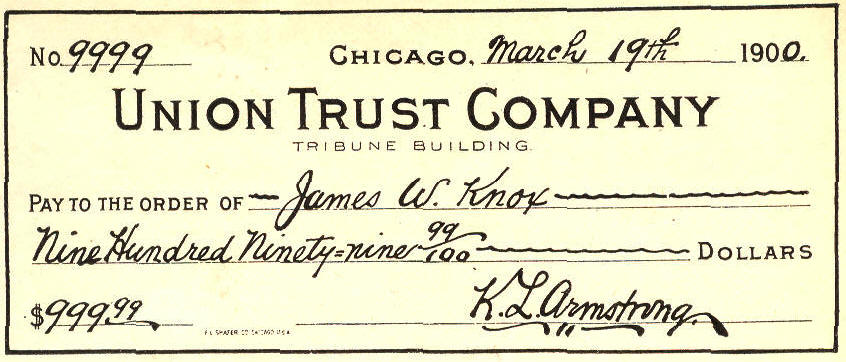 No. 9999 CHICAGO, March 19th 1900.
UNION TRUST COMPANY
TRIBUNE BUILDING.
PAY TO THE ORDER OF James W. Knox
Nine Hundred Ninety=nine 99/100 DOLLARS
$999.99 K. L. Armstrong.
F. L. SHAFER CO. CHICAGO U.S.A.